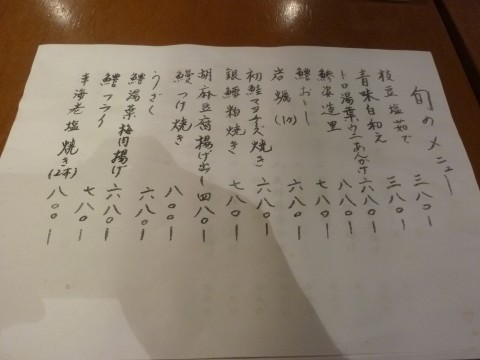 旬のメニュー
枝豆塩茹で 三八〇ー
青味白和え 三八〇ー
トロ湯葉ウニあんかけ 六八〇ー
鯵姿造里 八八〇ー
鱧おとし 七八〇ー
岩蠣(1ヶ) 六八〇ー
初鮭マヨチーズ焼き 六八〇ー
銀鱈粕焼き 七八〇ー
胡麻豆腐揚げ出し 四八〇ー
鰻つけ焼き 八〇〇ー
うざく 六八〇ー
鱧湯葉梅肉揚げ 六八〇ー
鱧フライ 七八〇ー
車海老塩焼き(2本) 八〇〇ー